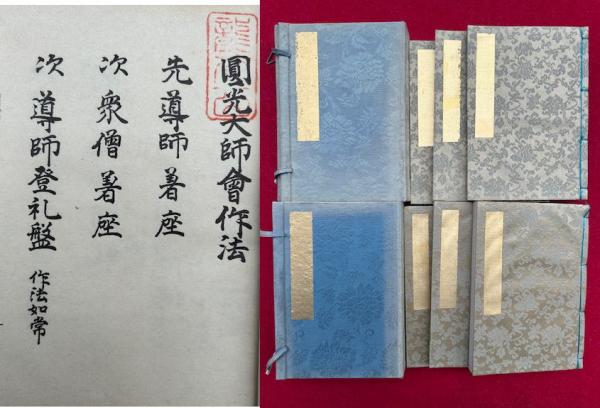 圓光大師會作法
先導師着座
次衆僧着座
次導師登礼盤 作法如常